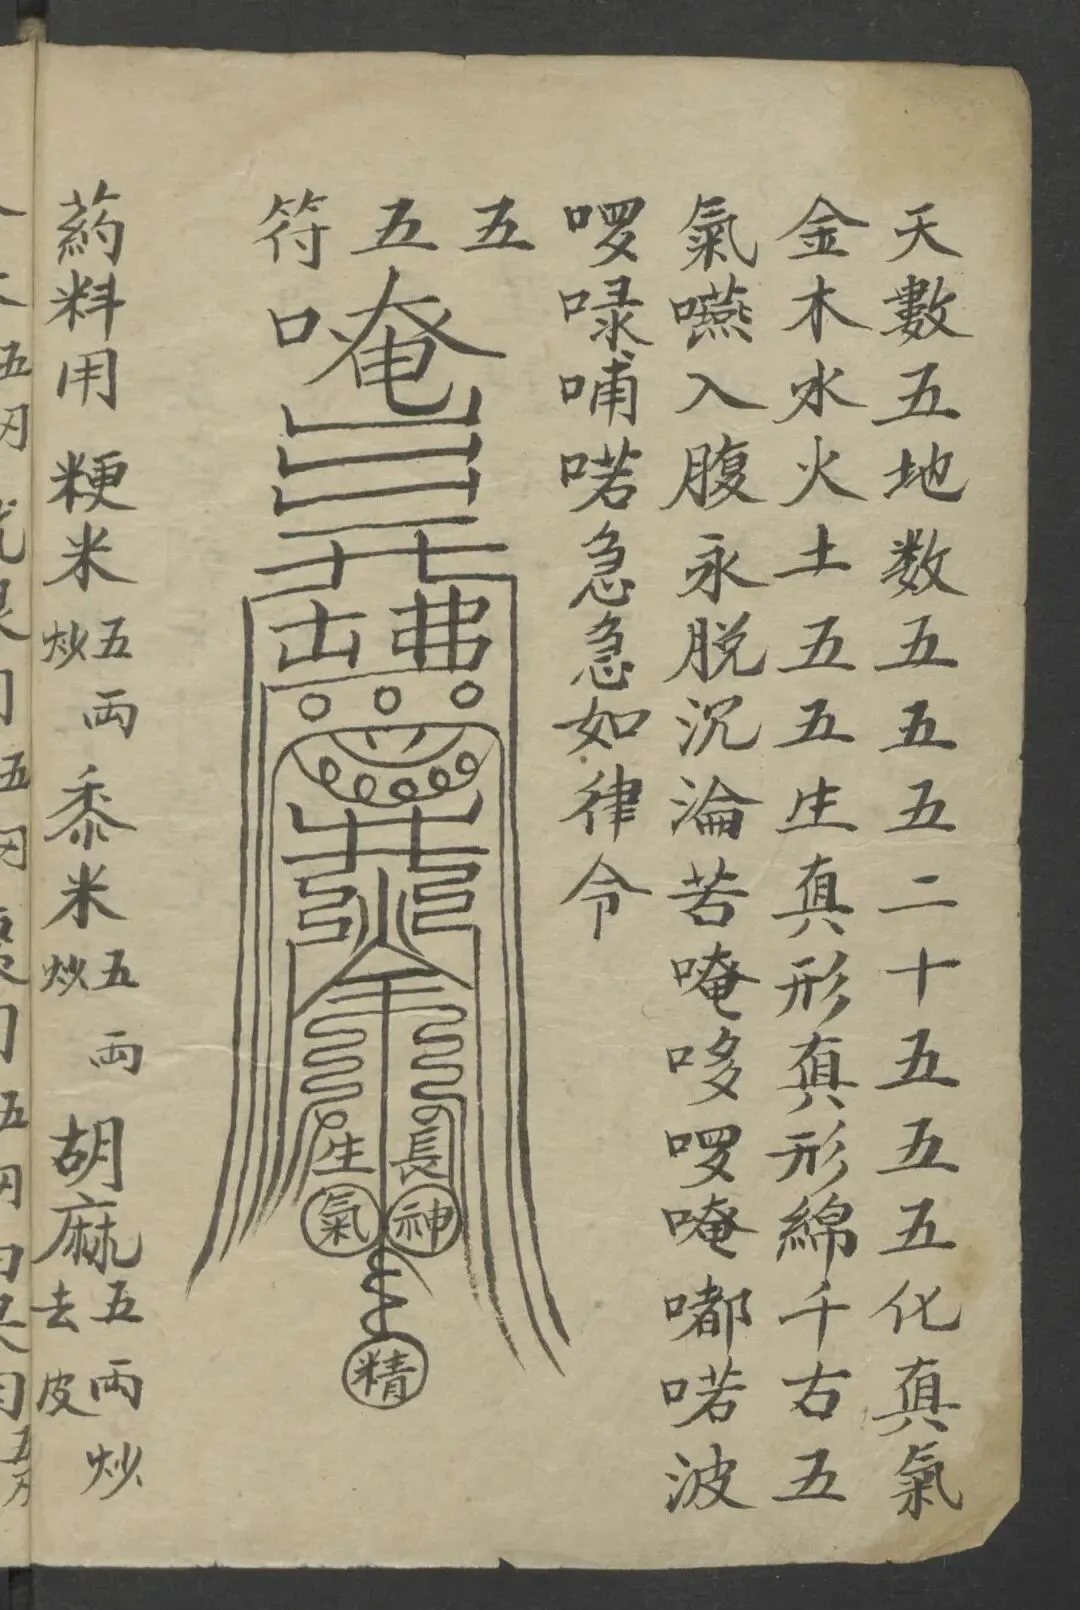 天數五地数五五五二十五五五化真氣
金木水火土五五生真形真形綿千右五
氣嚥入腹永脱沉淪苦唵哆啰唵嘟喏波
啰㖨哺喏急急如律令
五五符
唵
弗
長生
神氣
精
葯料用 粳米五両炒 黍米五両炒 胡麻五両去皮炒